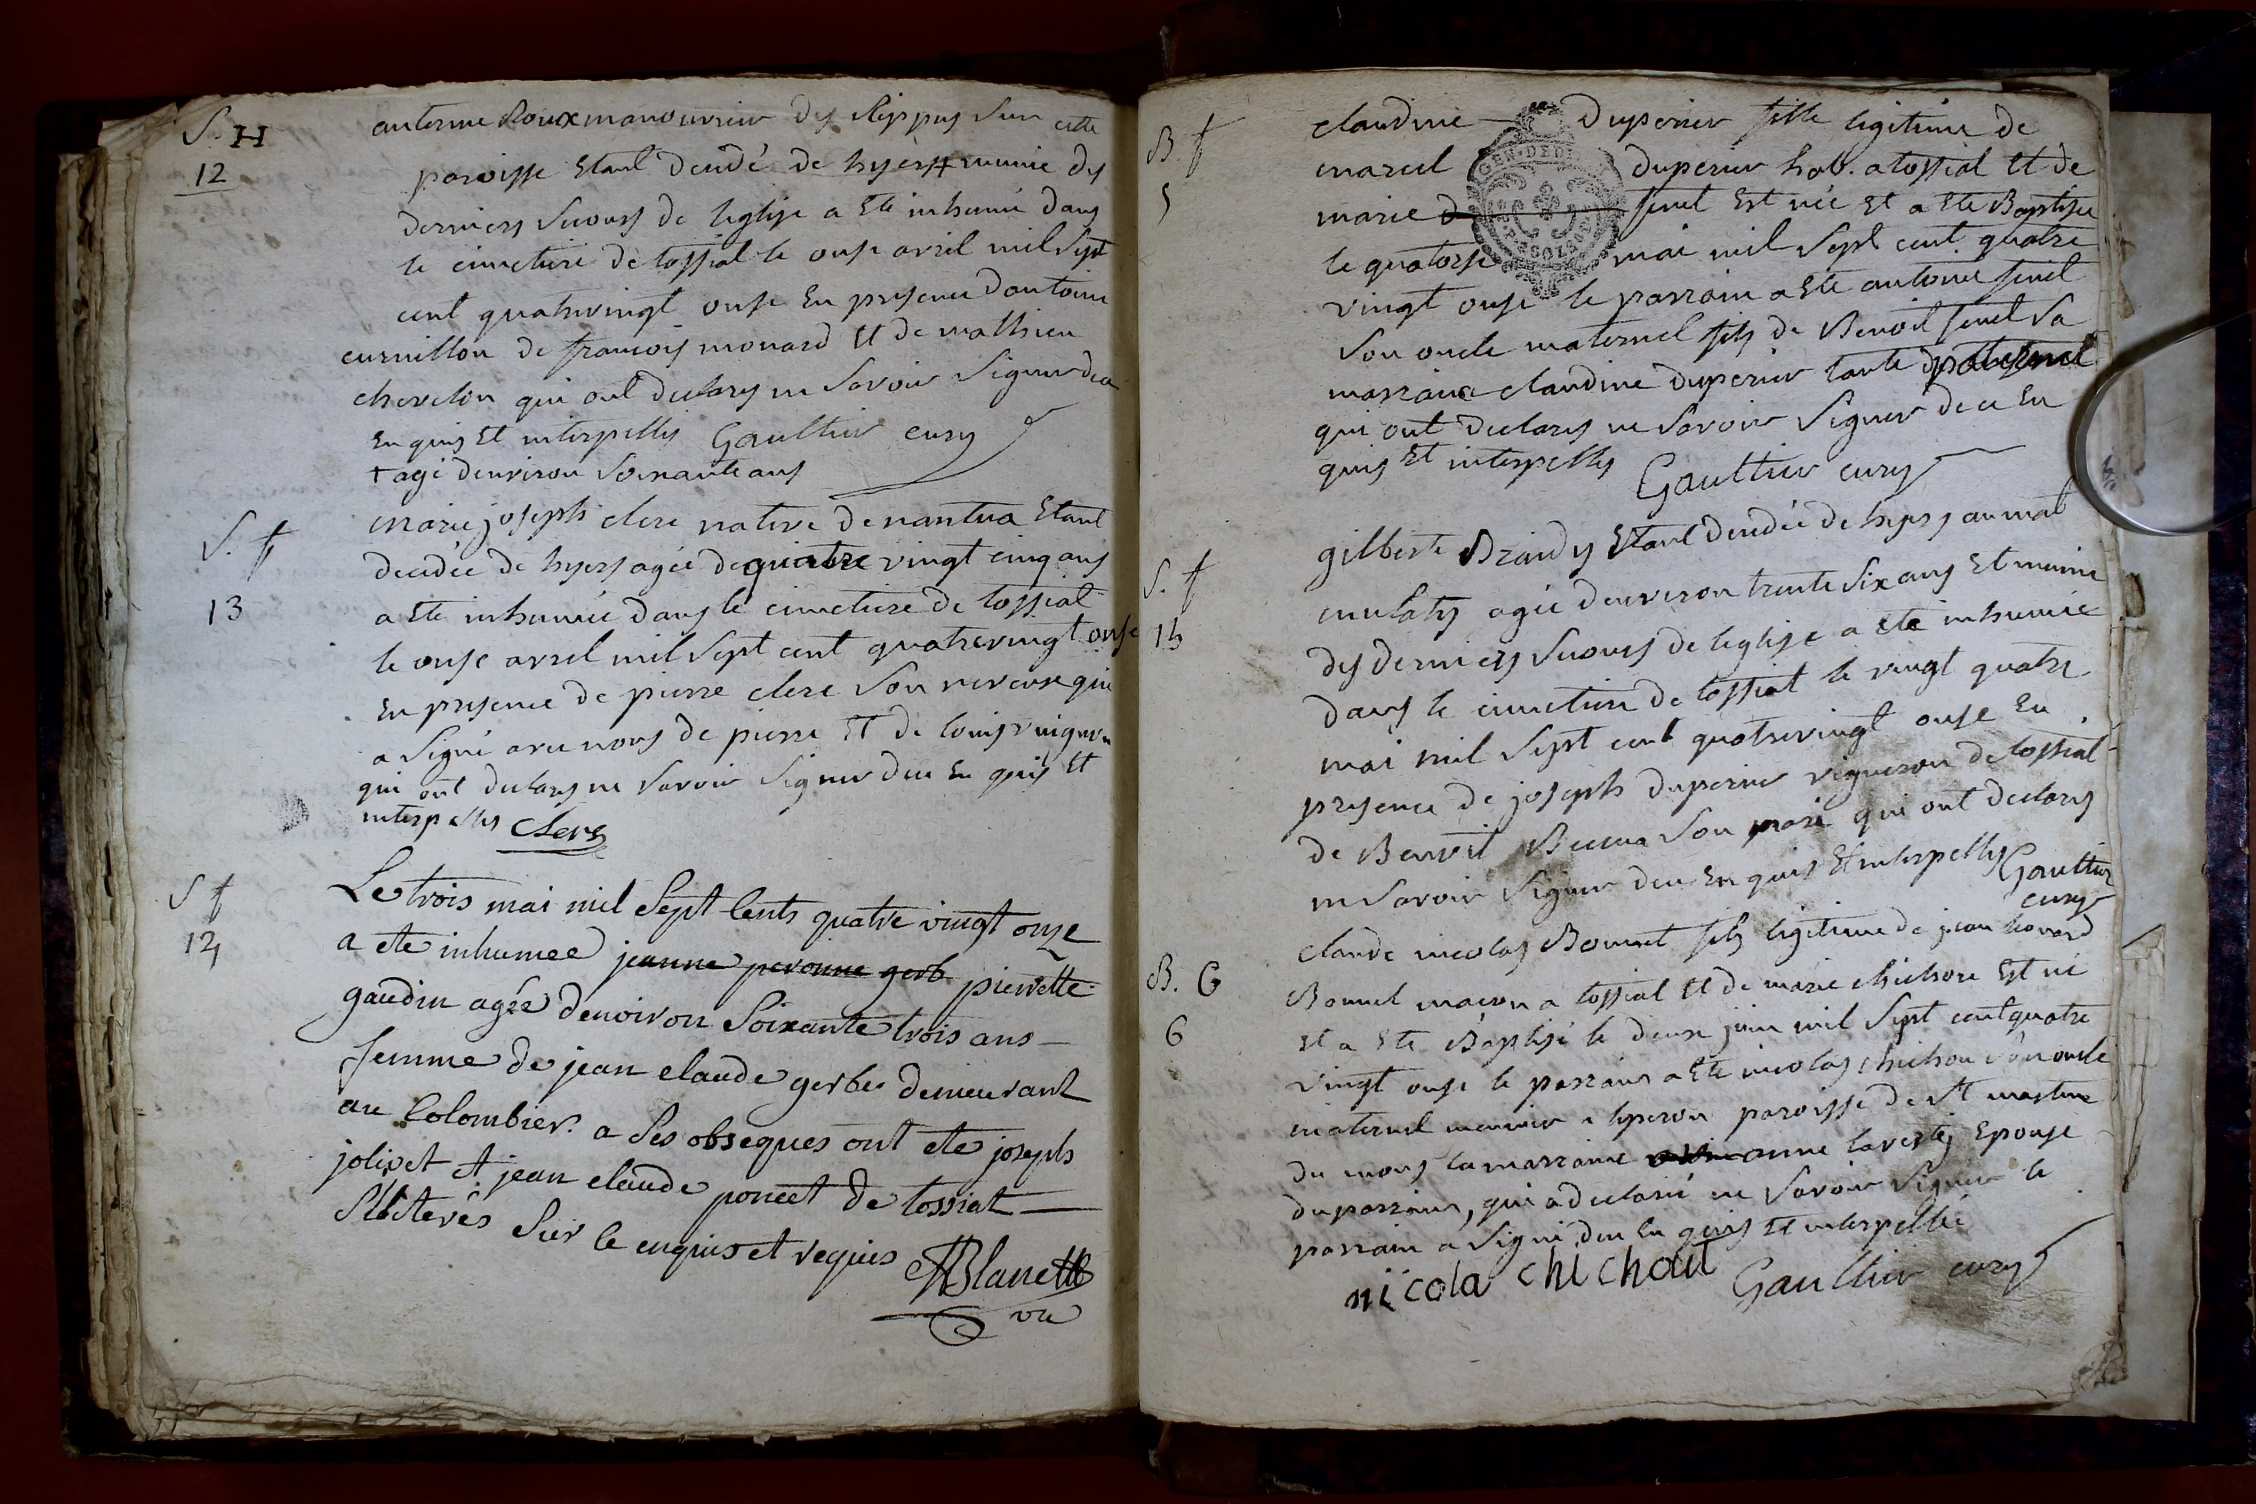 S. H
12
antoine Roux manouvrier des Rippes sur cette
paroisse Etant decedé de hyer + munie des
derniers secours de leglise a Ete inhumé dans
le cimetiere de tossiat le onse avril mil sept
cent quatrevingt onse En presence dantoine
curnillon de francois monard Et de mathieu
chevelon qui ont declares ne savoir signer de ce
Enquis Et interpellés Gaultier curé
+ agé denviron soixante ans
S. f
13
marie joseph clerc native de nantua Etant
decedée de hyers agée de quatre vingt cinq ans
a Ete inhumée dans le cimetiere de tossiat
le onse avril mil sept cent quatrevingt onse
En presence de pierre clerc son neveux qui
a signé avec nous de pierre Et de louis vuignon
qui ont declares ne savoir signer de ce En quis Et
interpellés Clerc
S f
14
Le trois mai mil sept cents quatre vingt onze
a ete inhumee jeanne peronne gerb pierrette
gaudin agée denviron soixante trois ans
femme de jean claude gerbe demeurant
au colombier. a ses obseques ont ete joseph
jolivet et jean claude poncet de tossiat
illiteres sur ce enquis et requis Blanc
B. f
5
claudine Duperier fille legitime de
marcel duperier hab. a tossiat Et de
marie feuel Est née Et a Ete Baptisée
le quatorse mai mil sept cent quatre
vingt onse le parrain a Ete antoine feuel
son oncle maternel fils de Benoit feuel sa
marraine claudine duperier tante paternel
qui ont declares ne savoir signer de ce En
quis Et interpellés Gaultier curé
S. f
15
gilberte Brandy Etant decedée de hyers au mas
mulaty agée denviron trente six ans Et munie
des derniers secours de leglise a ete inhumée
dans le cimetiere de tossiat le vingt quatre
mai mil sept cent quatrevingt onse En
presence de joseph duperier vigneron de tossiat
de Benoit son mari qui ont declares
ne savoir signer de ce En quis Et interpellés Gaultier
curé
B. G
6
claude nicolas Bonnet fils legitime de jean
Bonnet macon a tossiat Et de marie chichou Est né
Et a Ete Baptisé le deux juin mil sept cent quatre
vingt onse le parrain a Ete nicolas chichou son oncle
maternel paroisse de st martin
du mont la marraine anne Epouse
du parrain, qui a declaré ne savoir signer le
parrain a signé, de ce En quis Et interpellé
nicola chichout Gaultier curé